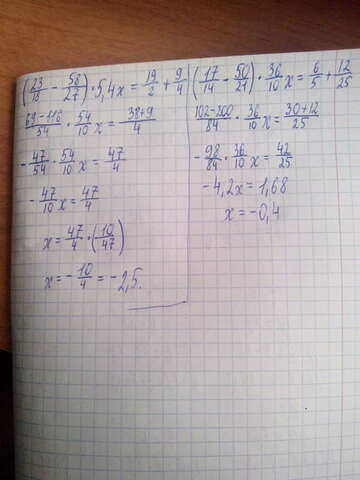 (23/18 − 58/27) · 5,4x = 19/2 + 9/4
69−116/54 · 54/10 x = 38+9/4
−47/54 · 54/10 x = 47/4
−47/10 x = 47/4
x = 47/4 · (10/47)
x = −10/4 = −2,5.
(17/14 − 50/21) · 36/10 x = 6/5 + 12/25
102−200/84 · 36/10 x = 30+12/25
−98/84 · 36/10 x = 42/25
−4,2x = 1,68
x = −0,4